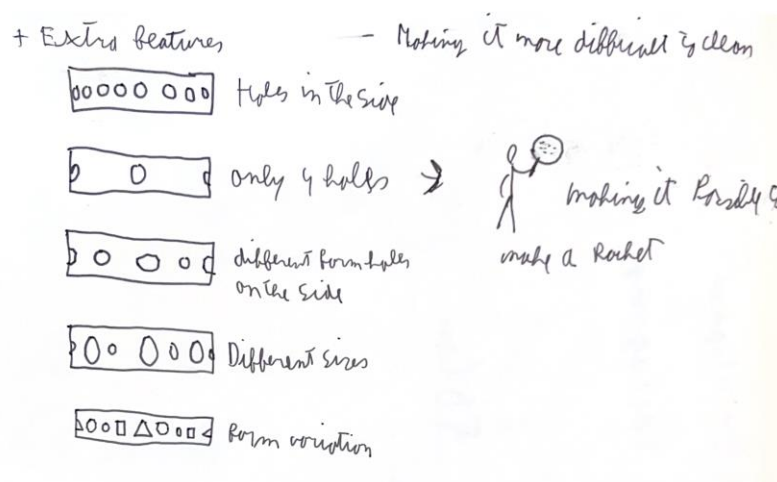 + Extra features
- Making it more difficult to clean
Holes in the side
only 4 holes →
making it Possible
make a Rocket
different form holes
on the side
Different sizes
form variation